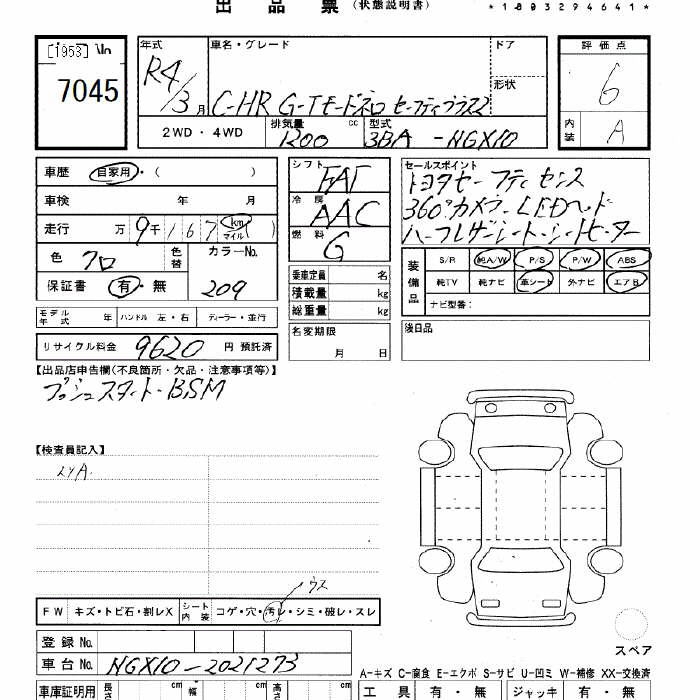 出 品 票 (状態説明書) *1803294641*
[1953] Vln
7045
年式 R4/3月
車名・グレード
C-HR G-Tモードネロ セーフティプラス2
ドア
形状
評価点
6
内装 A
2WD・4WD
排気量 1200 cc
型式 3BA-NGX10
車歴 自家用・( )
シフト FAT
セールスポイント
トヨタセーフティセンス
360°カメラ.LEDヘッド
ハーフレザーシート・シートヒーター
車検 年 月
冷房 AAC
走行 9万 千 167 km マイル ( )
燃料 G
色 クロ 色替 カラーNo. 209
保証書 有・無
乗車定員 名
積載量 kg
総重量 kg
装備品 S/R 純A/W P/S P/W ABS
純TV 純ナビ 革シート 外ナビ エアB
ナビ型番:
モデル年式 年 ハンドル 左・右 ディーラー・並行
名変期限
月 日
後日品
リサイクル料金 9620 円 預託済
【出品店申告欄(不良箇所・欠品・注意事項等)】
プッシュスタート・BSM
【検査員記入】
ウス
FW キズ・トビ石・割レX シート内装 コゲ・穴・汚レ・シミ・破レ・スレ
登録 No.
車台 No. NGX10-2021273
スペア
A-キズ C-腐食 E-エクボ S-サビ U-凹ミ W-補修 XX-交換済
車庫証明用 長さ cm 幅 cm 高さ cm
工具 有・無 ジャッキ 有・無